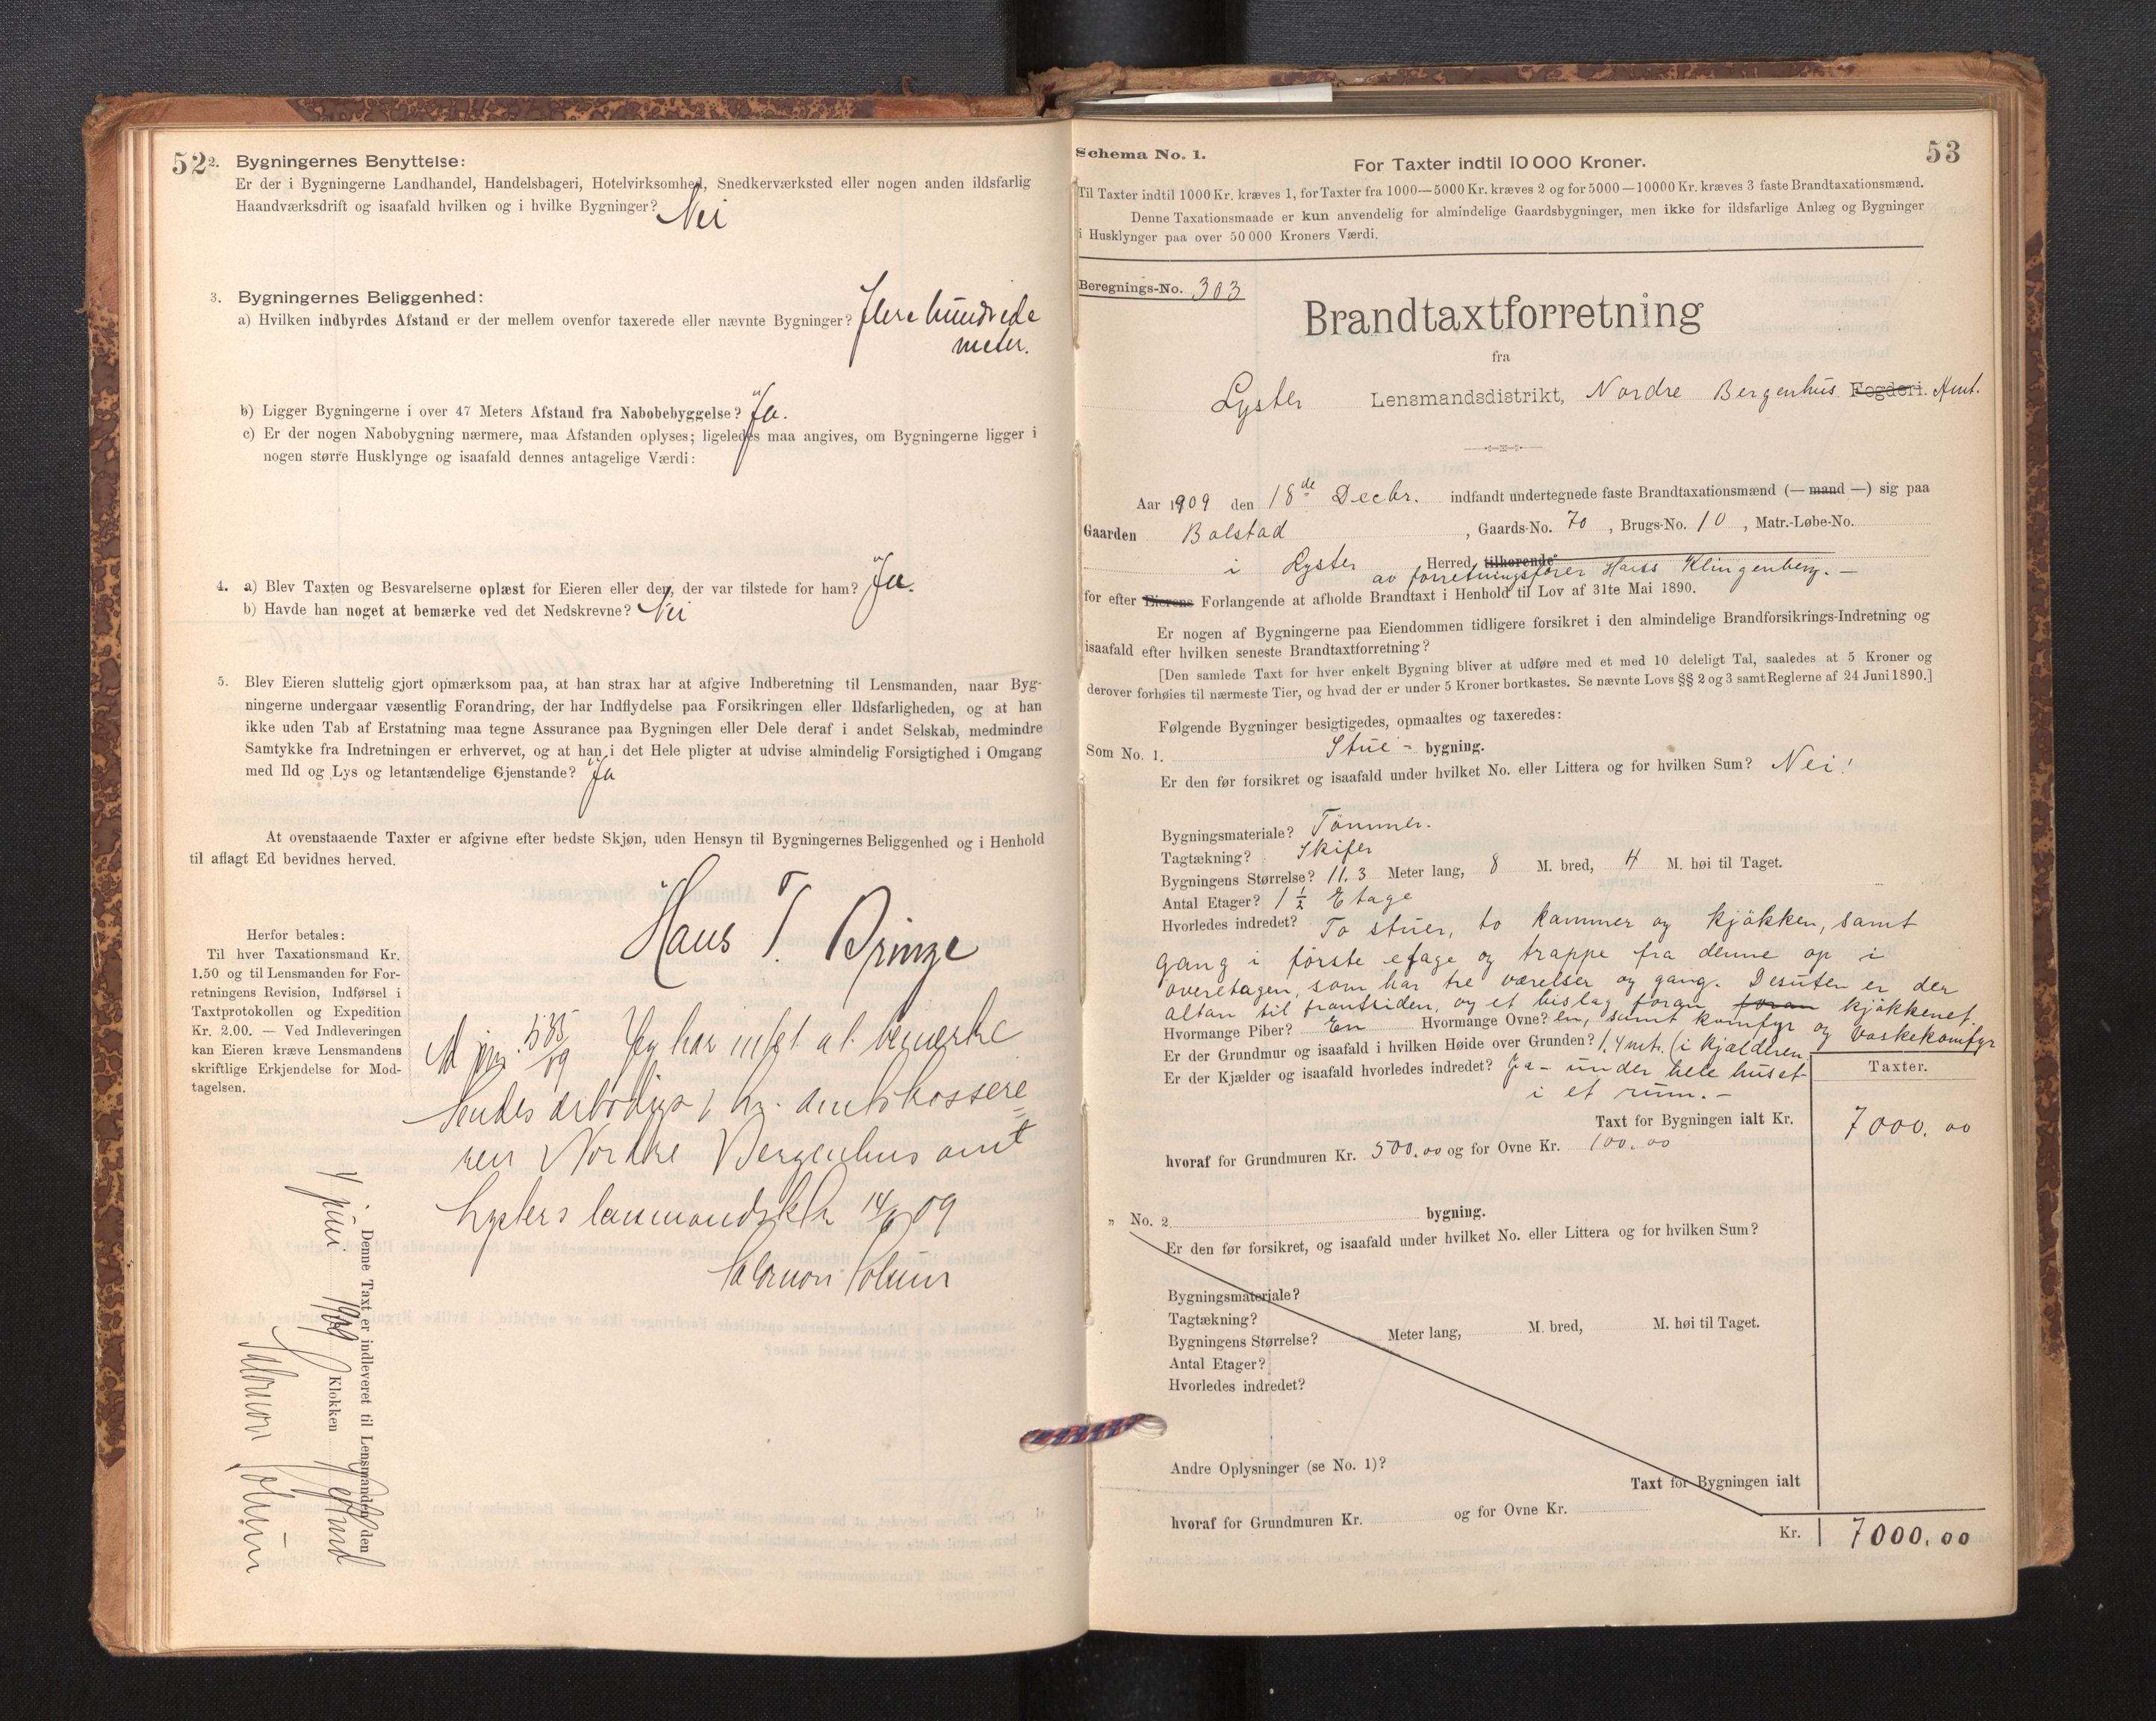 52
2. Bygningernes Benyttelse:
Er der i Bygningerne Landhandel, Handelsbageri, Hotelvirksomhed, Snedkerværksted eller nogen anden ildsfarlig
Haandværksdrift og isaafald hvilken og i hvilke Bygninger? Nei
3. Bygningernes Beliggenhed:
a) Hvilken indbyrdes Afstand er der mellem ovenfor taxerede eller nævnte Bygninger? flere hundrede
meter.
b) Ligger Bygningerne i over 47 Meters Afstand fra Nabobebyggelse? Ja.
c) Er der nogen Nabobygning nærmere, maa Afstanden oplyses; ligeledes maa angives, om Bygningerne ligger i
nogen større Husklynge og isaafald dennes antagelige Værdi:
4. a) Blev Taxten og Besvarelserne oplæst for Eieren eller den, der var tilstede for ham? Ja.
b) Havde han noget at bemærke ved det Nedskrevne? Nei
5. Blev Eieren sluttelig gjort opmærksom paa, at han strax har at afgive Indberetning til Lensmanden, naar Byg-
ningerne undergaar væsentlig Forandring, der har Indflydelse paa Forsikringen eller Ildsfarligheden, og at han
ikke uden Tab af Erstatning maa tegne Assurance paa Bygningen eller Dele deraf i andet Selskab, medmindre
Samtykke fra Indretningen er erhvervet, og at han i det Hele pligter at udvise almindelig Forsigtighed i Omgang
med Ild og Lys og letantændelige Gjenstande? Ja
At ovenstaaende Taxter er afgivne efter bedste Skjøn, uden Hensyn til Bygningernes Beliggenhed og i Henhold
til aflagt Ed bevidnes herved.
Hans T.
Herfor betales:
Til hver Taxationsmand Kr.
1.50 og til Lensmanden for For-
retningens Revision, Indførsel i
Taxtprotokollen og Expedition
Kr. 2.00. — Ved Indleveringen
kan Eieren kræve Lensmandens
skriftlige Erkjendelse for Mod-
tagelsen.
585/09 Jeg har intet at bemerke
Sendes ærbødigst hr. amtskassere
ren Nordre Bergenhus amt
Lysters lensmandskt 14/6 09
Salomon
Denne Taxt er indleveret til Lensmanden den
4 juni 1909 Klokken
Salomon
53
Schema No. 1.
For Taxter indtil 10 000 Kroner.
Til Taxter indtil 1000 Kr. kræves 1, for Taxter fra 1000—5000 Kr. kræves 2 og for 5000—10000 Kr. kræves 3 faste Brandtaxationsmænd.
Denne Taxationsmaade er kun anvendelig for almindelige Gaardsbygninger, men ikke for ildsfarlige Anlæg og Bygninger
i Husklynger paa over 50 000 Kroners Værdi.
Beregnings-No. 303
Brandtaxtforretning
fra
Lyster Lensmandsdistrikt, Nordre Bergenhus Fogderi. Amt.
Aar 1909 den 18de Decbr. indfandt undertegnede faste Brandtaxationsmænd (— mand —) sig paa
Gaarden Bolstad, Gaards-No. 70, Brugs-No. 10, Matr.-Løbe-No.
i Lyster Herred tilhørende
av forretningsfører Hans Klingenberg. —
for efter Eierens Forlangende at afholde Brandtaxt i Henhold til Lov af 31te Mai 1890.
Er nogen af Bygningerne paa Eiendommen tidligere forsikret i den almindelige Brandforsikrings-Indretning og
isaafald efter hvilken seneste Brandtaxtforretning?
[Den samlede Taxt for hver enkelt Bygning bliver at udføre med et med 10 deleligt Tal, saaledes at 5 Kroner og
derover forhøies til nærmeste Tier, og hvad der er under 5 Kroner bortkastes. Se nævnte Lovs §§ 2 og 3 samt Reglerne af 24 Juni 1890.]
Følgende Bygninger besigtigedes, opmaaltes og taxeredes:
Som No. 1. Stue- bygning.
Er den før forsikret og isaafald under hvilket No. eller Littera og for hvilken Sum? Nei!
Bygningsmateriale? Tömmer.
Tagtækning? Skifer
Bygningens Størrelse? 11.3 Meter lang, 8 M. bred, 4 M. høi til Taget.
Antal Etager? 1 1/2 Etage
Hvorledes indredet? To stuer, to kammer og kjökken, samt
gang i förste etage og trappe fra denne op i
överetagen, som har tre værelser og gang. Desuten er der
altan til frontsiden, og et bislag foran foran kjökkenet.
Hvormange Piber? En Hvormange Ovne? en, samt komfyr og vaskekomfyr
Er der Grundmur og isaafald i hvilken Høide over Grunden? 1,4 mtr. (i kjælderen.
Er der Kjælder og isaafald hvorledes indredet? Ja - under hele huset
i et rum. -
Taxter.
Taxt for Bygningen ialt Kr. 7000.00
hvoraf for Grundmuren Kr. 500.00 og for Ovne Kr. 100.00
„ No. 2 bygning.
Er den før forsikret, og isaafald under hvilket No. eller Littera og for hvilken Sum?
Bygningsmateriale?
Tagtækning?
Bygningens Størrelse? Meter lang, M. bred, M. høi til Taget.
Antal Etager?
Hvorledes indredet?
Andre Oplysninger (se No. 1)?
Taxt for Bygningen ialt
hvoraf for Grundmuren Kr. og for Ovne Kr.
Kr. 7000.00